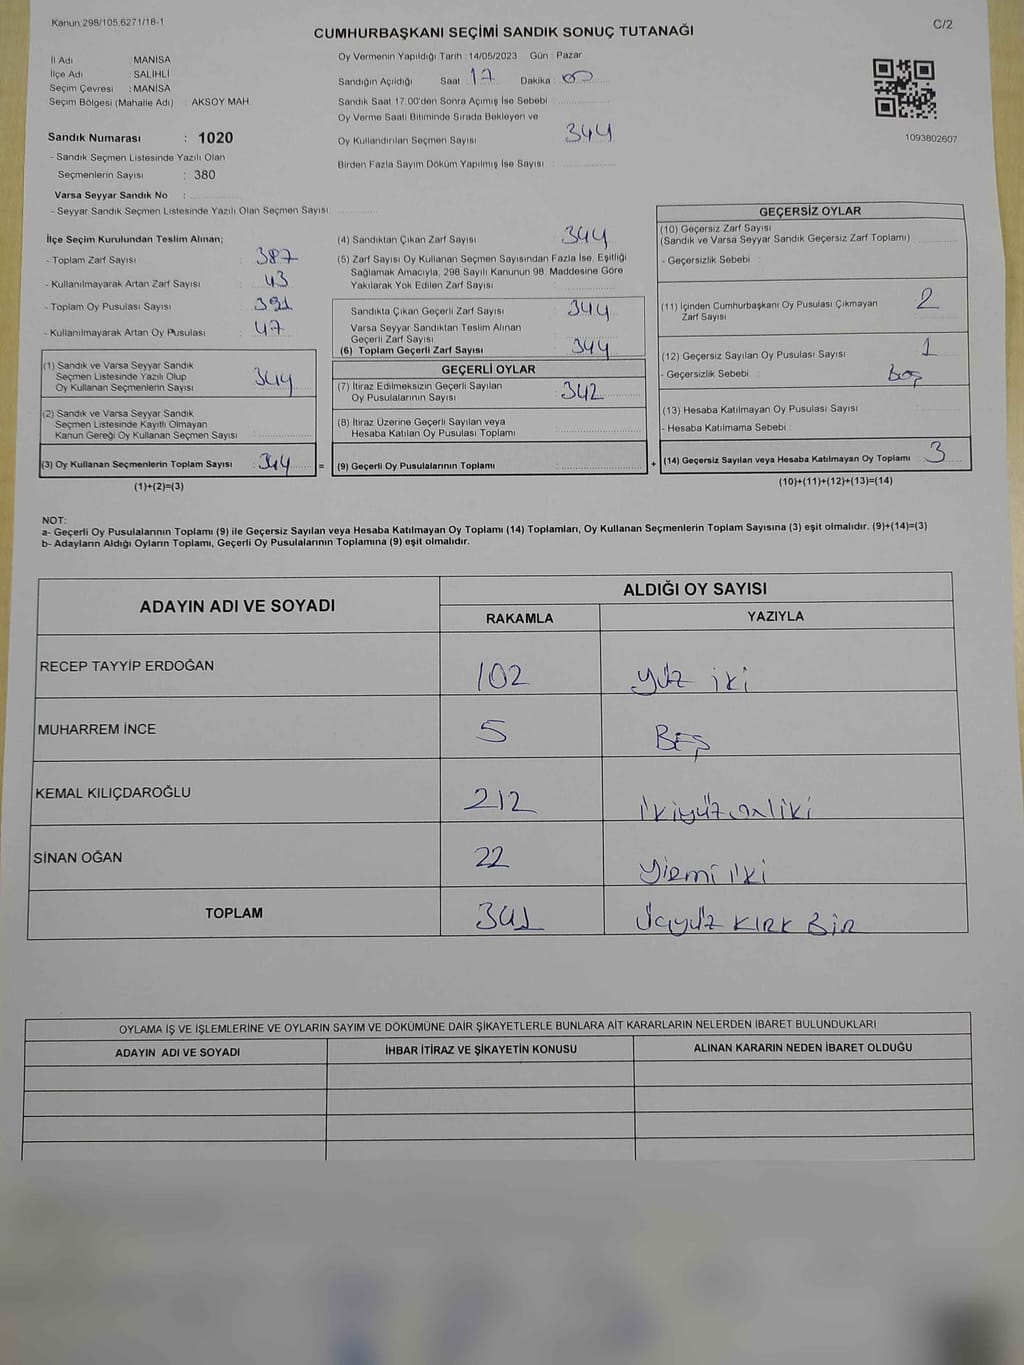 Kanun:298/105,6271/18-1
C/2
CUMHURBAŞKANI SEÇİMİ SANDIK SONUÇ TUTANAĞI
İl Adı : MANİSA
İlçe Adı : SALİHLİ
Seçim Çevresi : MANİSA
Seçim Bölgesi (Mahalle Adı) : AKSOY MAH.
Oy Vermenin Yapıldığı Tarih : 14/05/2023 Gün : Pazar
Sandığın Açıldığı Saat : 17 Dakika : 00
Sandık Saat 17:00'den Sonra Açımış İse Sebebi :
Oy Verme Saati Bitiminde Sırada Bekleyen ve
Oy Kullandırılan Seçmen Sayısı : 344
Birden Fazla Sayım Döküm Yapılmış İse Sayısı :
1093802607
Sandık Numarası : 1020
- Sandık Seçmen Listesinde Yazılı Olan
Seçmenlerin Sayısı : 380
Varsa Seyyar Sandık No :
- Seyyar Sandık Seçmen Listesinde Yazılı Olan Seçmen Sayısı :
İlçe Seçim Kurulundan Teslim Alınan;
- Toplam Zarf Sayısı : 387
- Kullanılmayarak Artan Zarf Sayısı : 43
- Toplam Oy Pusulası Sayısı : 391
- Kullanılmayarak Artan Oy Pusulası : 47
(1) Sandık ve Varsa Seyyar Sandık
Seçmen Listesinde Yazılı Olup
Oy Kullanan Seçmenlerin Sayısı : 344
(2) Sandık ve Varsa Seyyar Sandık
Seçmen Listesinde Kayıtlı Olmayan
Kanun Gereği Oy Kullanan Seçmen Sayısı :
(3) Oy Kullanan Seçmenlerin Toplam Sayısı : 344 =
(1)+(2)=(3)
(4) Sandıktan Çıkan Zarf Sayısı : 344
(5) Zarf Sayısı Oy Kullanan Seçmen Sayısından Fazla İse, Eşitliği
Sağlamak Amacıyla, 298 Sayılı Kanunun 98. Maddesine Göre
Yakılarak Yok Edilen Zarf Sayısı :
Sandıkta Çıkan Geçerli Zarf Sayısı : 344
Varsa Seyyar Sandıktan Teslim Alınan
Geçerli Zarf Sayısı :
(6) Toplam Geçerli Zarf Sayısı : 344
GEÇERLİ OYLAR
(7) İtiraz Edilmeksizin Geçerli Sayılan
Oy Pusulalarının Sayısı : 342
(8) İtiraz Üzerine Geçerli Sayılan veya
Hesaba Katılan Oy Pusulası Toplamı :
(9) Geçerli Oy Pusulalarının Toplamı : +
GEÇERSİZ OYLAR
(10) Geçersiz Zarf Sayısı
(Sandık ve Varsa Seyyar Sandık Geçersiz Zarf Toplamı) :
- Geçersizlik Sebebi :
(11) İçinden Cumhurbaşkanı Oy Pusulası Çıkmayan
Zarf Sayısı : 2
(12) Geçersiz Sayılan Oy Pusulası Sayısı : 1
- Geçersizlik Sebebi : Boş
(13) Hesaba Katılmayan Oy Pusulası Sayısı :
- Hesaba Katılmama Sebebi :
(14) Geçersiz Sayılan veya Hesaba Katılmayan Oy Toplamı : 3
(10)+(11)+(12)+(13)=(14)
NOT:
a- Geçerli Oy Pusulalarının Toplamı (9) ile Geçersiz Sayılan veya Hesaba Katılmayan Oy Toplamı (14) Toplamları, Oy Kullanan Seçmenlerin Toplam Sayısına (3) eşit olmalıdır. (9)+(14)=(3)
b- Adayların Aldığı Oyların Toplamı, Geçerli Oy Pusulalarının Toplamına (9) eşit olmalıdır.
ADAYIN ADI VE SOYADI
ALDIĞI OY SAYISI
RAKAMLA YAZIYLA
RECEP TAYYİP ERDOĞAN 102 yüz iki
MUHARREM İNCE 5 BEŞ
KEMAL KILIÇDAROĞLU 212 ikiyüz oniki
SİNAN OĞAN 22 yirmi iki
TOPLAM 341 üçyüz KIRK BİR
OYLAMA İŞ VE İŞLEMLERİNE VE OYLARIN SAYIM VE DÖKÜMÜNE DAİR ŞİKAYETLERLE BUNLARA AİT KARARLARIN NELERDEN İBARET BULUNDUKLARI
ADAYIN ADI VE SOYADI İHBAR İTİRAZ VE ŞİKAYETİN KONUSU ALINAN KARARIN NEDEN İBARET OLDUĞU